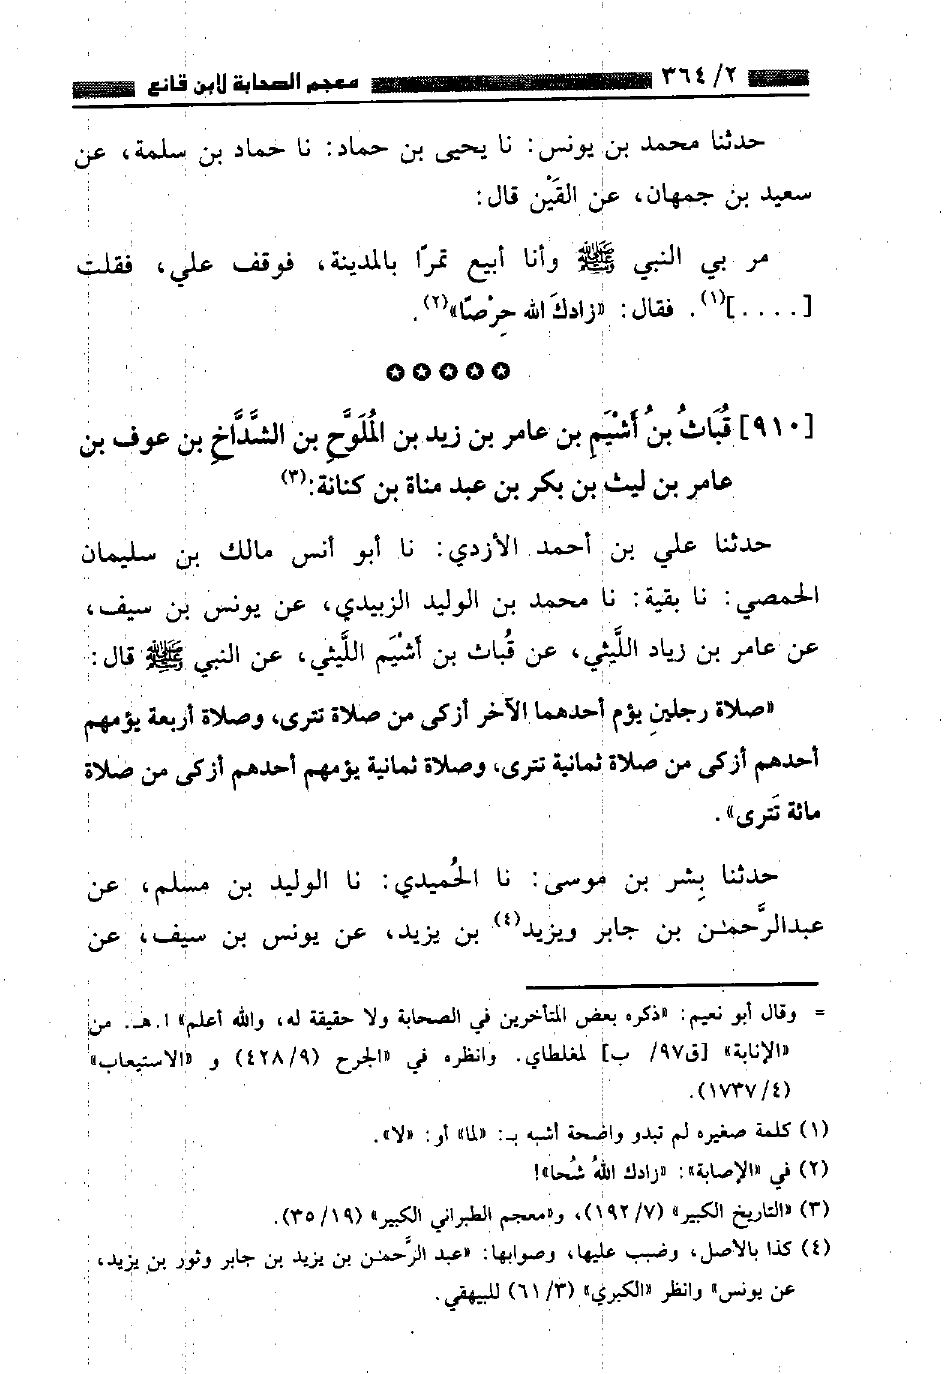 ٢/ ٣٦٤ معجم الصحابة لابن قانع
حدثنا محمد بن يونس: نا يحيى بن حماد: نا حماد بن سلمة، عن
سعيد بن جمهان، عن القَيْن قال:
مر بي النبي ﷺ وأنا أبيع تمرًا بالمدينة، فوقف علي، فقلت
[....](١). فقال: «زادكَ الله حِرْصًا»(٢).
✪ ✪ ✪ ✪ ✪
[٩١٠] قُبَاثُ بنُ أَشْيَمِ بن عامر بن زيد بن المُلَوَّحِ بن الشَّدَّاخِ بن عوف بن
عامر بن ليث بن بكر بن عبد مناة بن كنانة:(٣)
حدثنا علي بن أحمد الأزدي: نا أبو أنس مالك بن سليمان
الحمصي: نا بقية: نا محمد بن الوليد الزبيدي، عن يونس بن سيف،
عن عامر بن زياد اللَّيثي، عن قُباث بن أَشْيَم اللَّيثي، عن النبي ﷺ قال:
«صلاة رجلينِ يؤم أحدهما الآخر أزكى من صلاة تترى، وصلاة أربعة يؤمهم
أحدهم أزكى من صلاة ثمانية تترى، وصلاة ثمانية يؤمهم أحدهم أزكى من صلاة
مائة تَترى».
حدثنا بِشر بن موسى: نا الحُميدي: نا الوليد بن مسلم، عن
عبدالرَّحمٰن بن جابر ويزيد(٤) بن يزيد، عن يونس بن سيف، عن
= وقال أبو نعيم: «ذكره بعض المتأخرين في الصحابة ولا حقيقة له، والله أعلم» ا.هـ. من
«الإنابة» [ق٩٧/ ب] لمغلطاي. وانظره في «الجرح (٤٢٨/٩) و «الاستيعاب»
(١٧٣٧/٤).
(١) كلمة صغيره لم تبدو واضحة أشبه بـ: «لما» أو: «لا».
(٢) في «الإصابة»: «زادك اللهُ شُحا»!
(٣) «التاريخ الكبير» (١٩٢/٧)، و«معجم الطبراني الكبير» (٣٥/١٩).
(٤) كذا بالأصل، وضبب عليها، وصوابها: «عبد الرَّحمٰن بن يزيد بن جابر وثور بن يزيد،
عن يونس» وانظر «الكبري» (٦١/٣) للبيهقي.